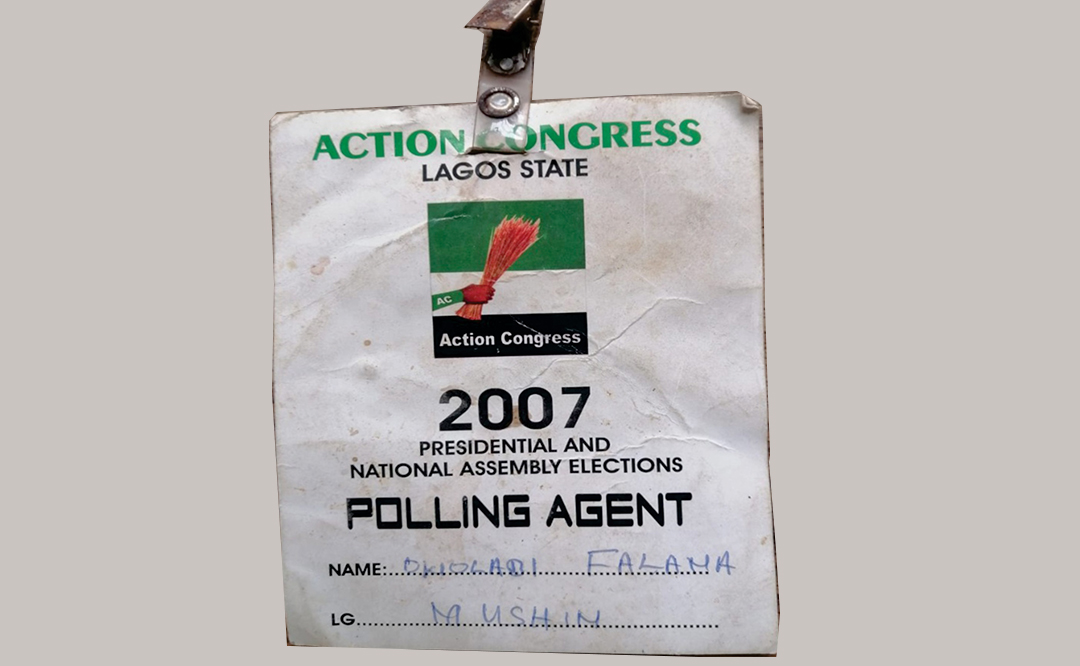 ACTION CONGRESS
LAGOS STATE
AC
Action Congress
2007
PRESIDENTIAL AND
NATIONAL ASSEMBLY ELECTIONS
POLLING AGENT
NAME: FALANA
LG MUSHIN